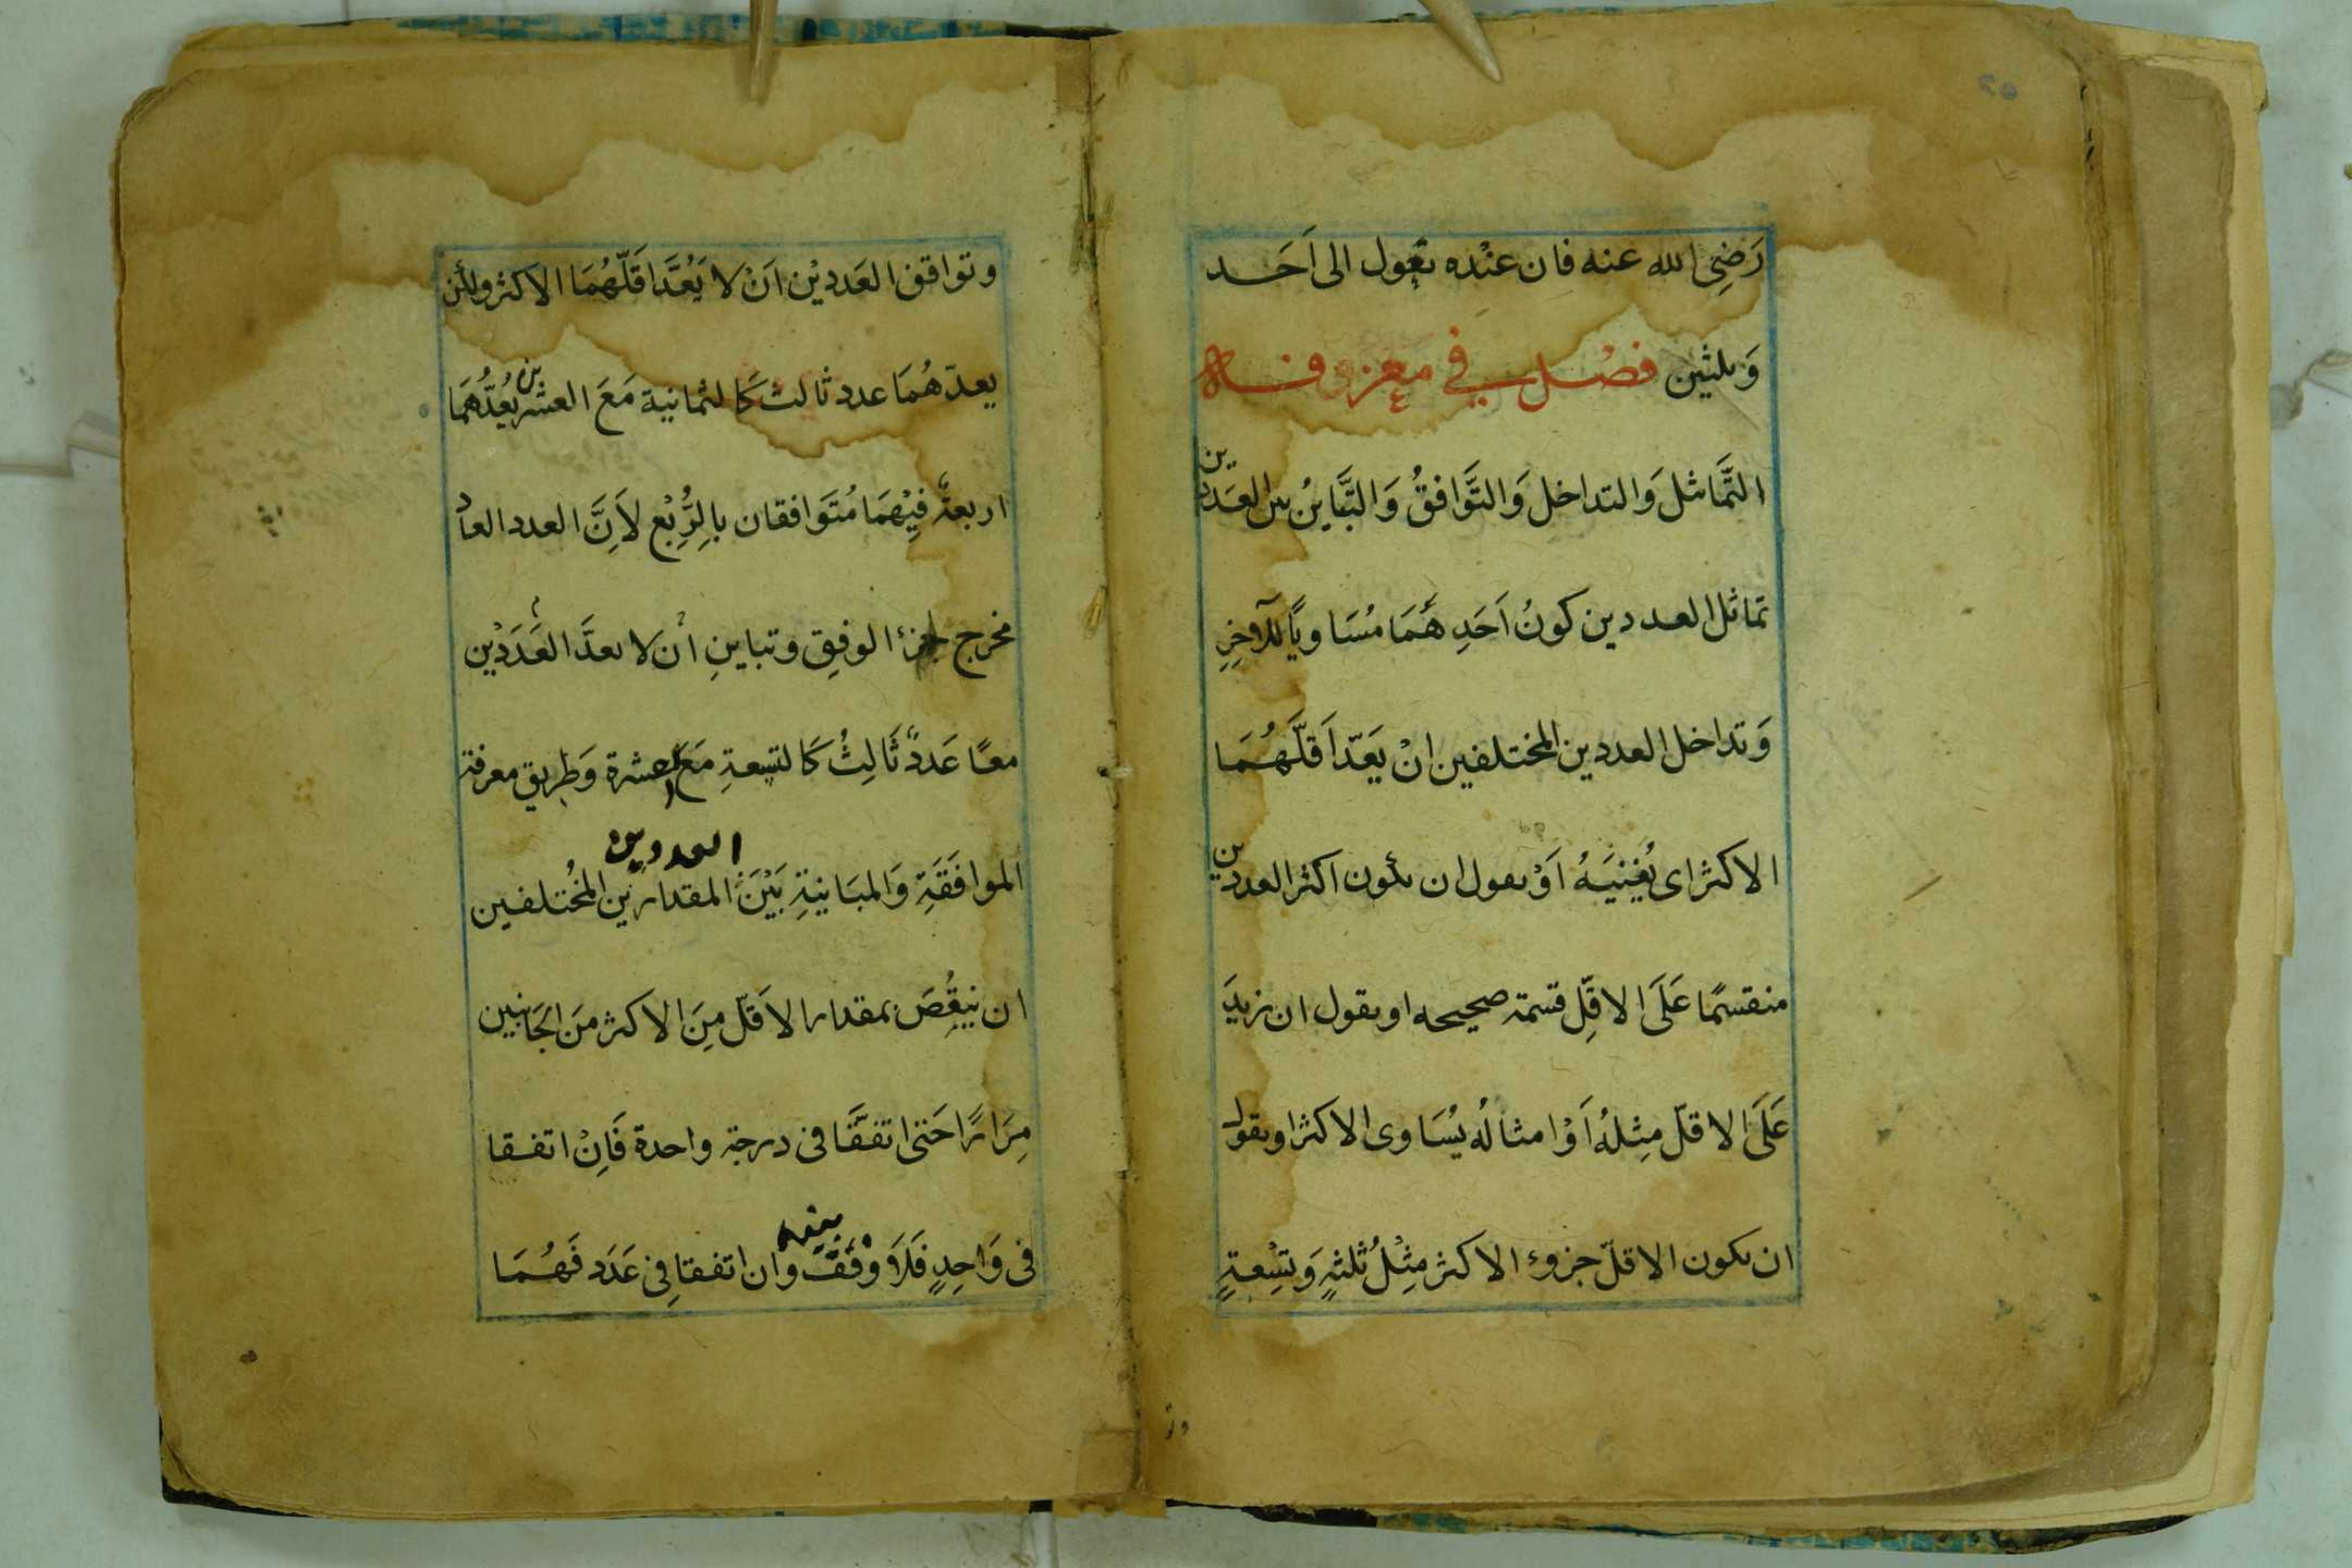 رَضِىَ الله عنه فان عنْده تعول الى اَحَد
وَثلثين فصْل في معرفة
التَّماثل وَالتداخل وَالتَّوافقُ وَالتَّباينُ بين العَددين
تماثل العددين كونُ اَحَدِ هُمَا مُسَاويًا للآخِرِ
وَتداخل العددين المختلفين انْ يَعَدّ اَقلّهُمَا
الاكثر اى يُفِنيَهُ اَوْ يقول ان يكون اكثر العددين
منقسمًا عَلَى الاقلِّ قسمة صحيحه او يقول ان نزيدَ
عَلَى الاقلّ مِثلهُ اَوْ امثالُه يُسَاوى الاكثر او يقول
ان يكون الاقلّ جزوء الاكثر مِثْلُ ثلثةٍ وَتِسْعةٍ
وتوافق العَدديْن اَنْ لا يَعُدَّ اَقلّهُمَا الاكثر ولكن
يعدّ هُمَا عدد ثالث كَالثمانية مَعَ العشرين يُعدُّهُمَا
اربعةٌ فِيْهُمَا مُتَوافقان بالِرُّبْع لاَنَّ العدد العاد
مخرج لجزء الوفِق وتباينِ انْ لا يعدَّ العَدَدَيْن
معًا عَددٌ ثَالِثُ كَالتسعةِ مَعَ العشرة وَطريق معرفة
العددين
الموافَقَةِ وَالمبَاينةِ بَيْنَ المقدارين المخُتلفين
ان ينقُصَ بمقدار الاَقلّ مِنَ الاكثر مَنَ الجَانِبين
مِرَارًا حَتى اتفَّقا فى درجة واحدة فَاِنْ اتفقا
بينهما
فى وَاحِدٍ فَلاَ وفْقَ وان اتفقا فِى عَدَد فَهُمَا
وتو